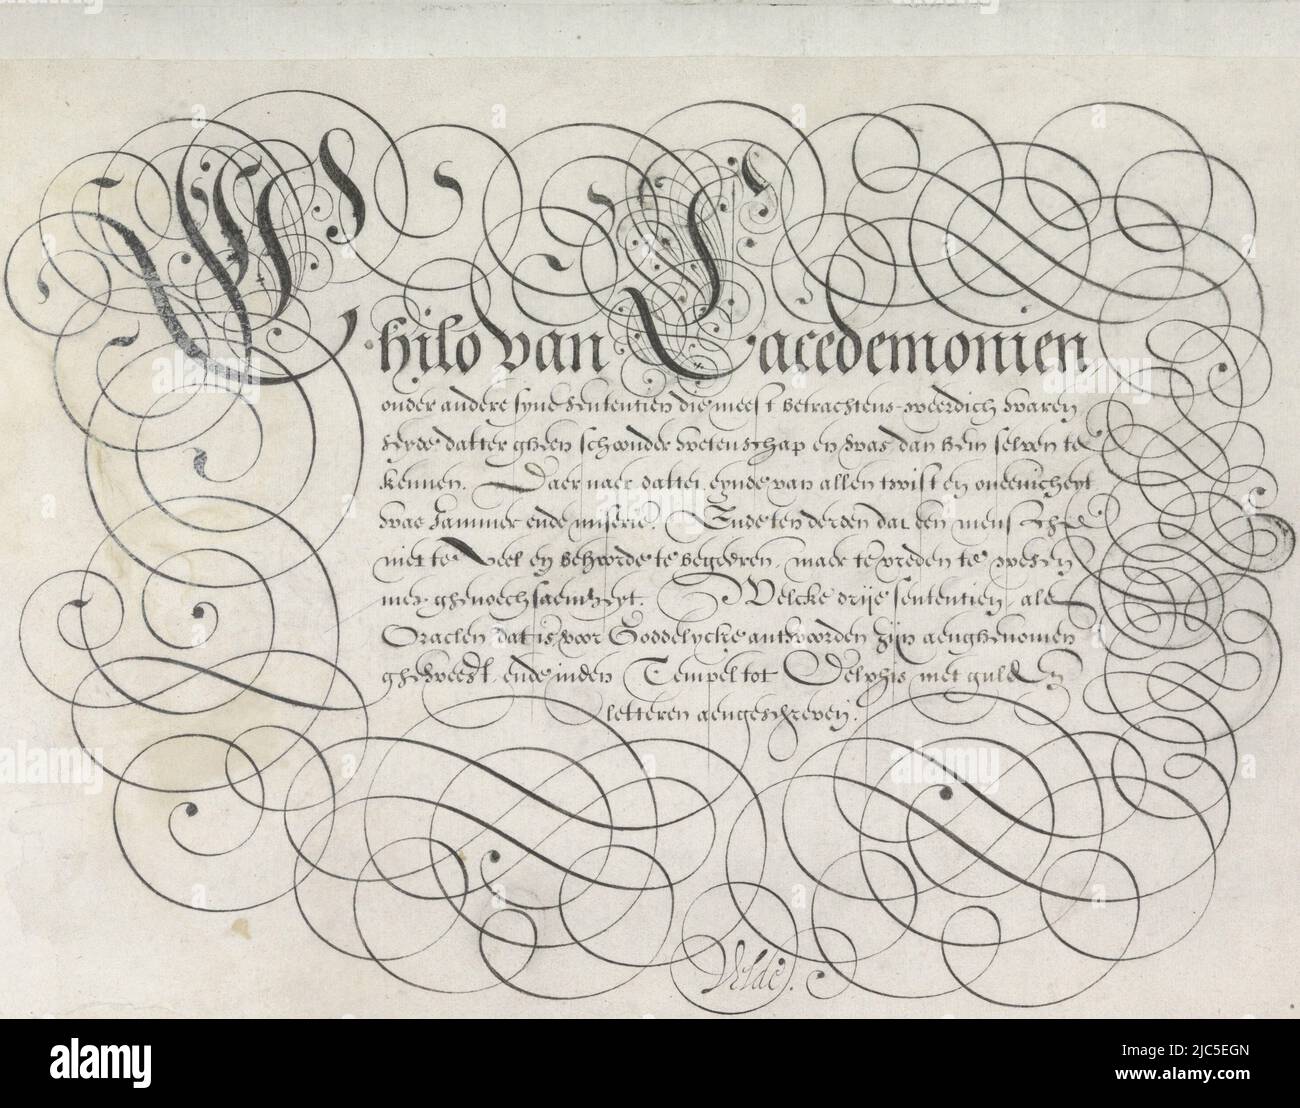 Philo van Lacedemonien,
onder andere syne sententien die meest betrachtens-weerdich waren
seyde datter gheen schoonder wetenschap en was dan hem selven te
kennen. Daer naer dattet eynde van allen twist en oneenicheyt
was Jammer ende miserie. Ende ten derden dat den mensche
niet te Veel en behoorde te begeeren, maer te vreden te wesen
met ghenoechsaemheyt. Welcke drije sententien, als
Oraclen dat is voor Goddelycke antwoorden zijn aenghenomen
gheweest, ende inden Tempel tot Delphis met gulden
letteren aengeschreven.
Velde.
alamy
Image ID: 2JC5EGN
www.alamy.com